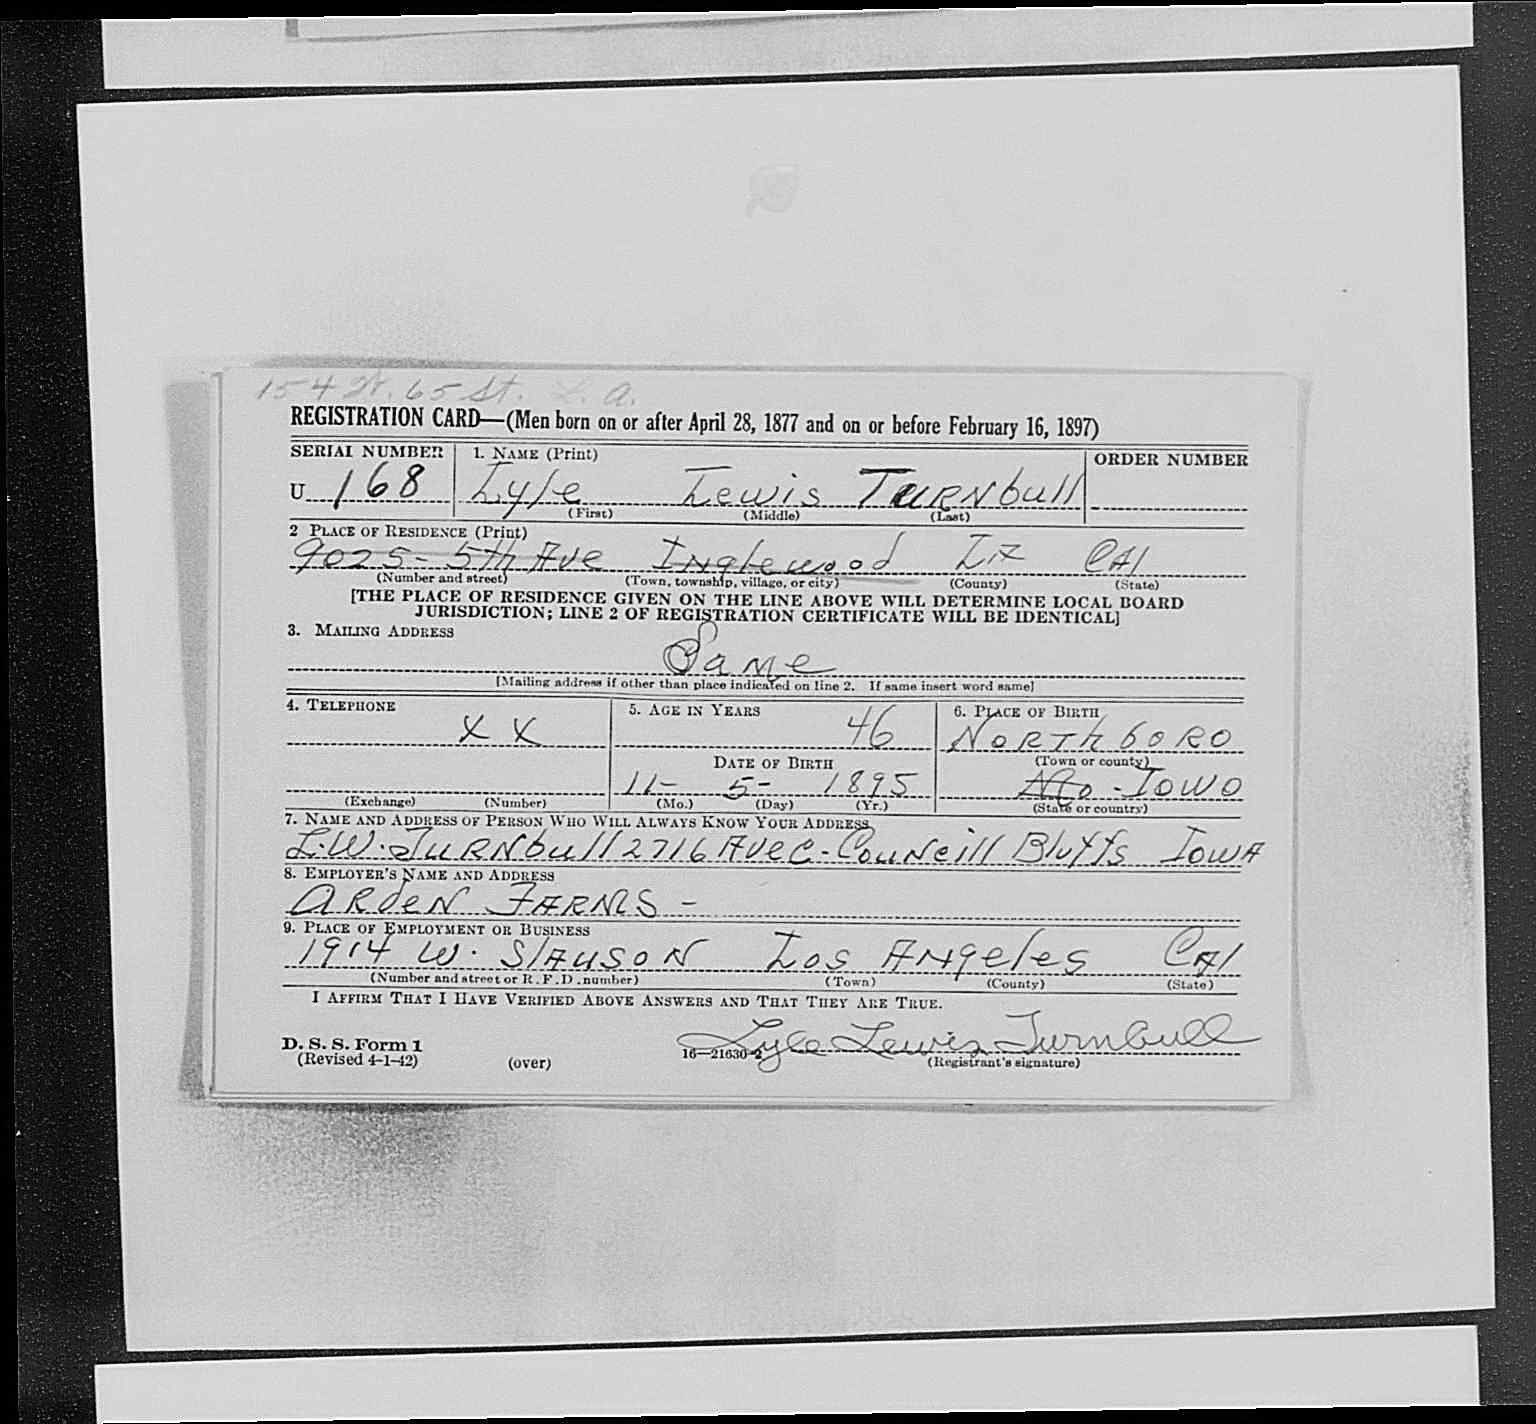 154 W. 65 St. L. A.
REGISTRATION CARD—(Men born on or after April 28, 1877 and on or before February 16, 1897)
SERIAL NUMBER 1. NAME (Print) ORDER NUMBER
U 168 Lyle Lewis TURNbull
(First) (Middle) (Last)
2 PLACE OF RESIDENCE (Print)
9025- 5th Ave Inglewood LA CAl
(Number and street) (Town, township, village, or city) (County) (State)
[THE PLACE OF RESIDENCE GIVEN ON THE LINE ABOVE WILL DETERMINE LOCAL BOARD
JURISDICTION; LINE 2 OF REGISTRATION CERTIFICATE WILL BE IDENTICAL]
3. MAILING ADDRESS
Same
[Mailing address if other than place indicated on line 2. If same insert word same]
4. TELEPHONE 5. AGE IN YEARS 6. PLACE OF BIRTH
X X 46 NORThboRO
DATE OF BIRTH (Town or county)
11- 5- 1895 Mo - IOWO
(Exchange) (Number) (Mo.) (Day) (Yr.) (State or country)
7. NAME AND ADDRESS OF PERSON WHO WILL ALWAYS KNOW YOUR ADDRESS
L.W. TURNbull 2716 Ave C- Councill Bluffs IOWA
8. EMPLOYER'S NAME AND ADDRESS
ARdeN FARMS -
9. PLACE OF EMPLOYMENT OR BUSINESS
1914 W. SlAUSON Los ANgeles CAl
(Number and street or R. F. D. number) (Town) (County) (State)
I AFFIRM THAT I HAVE VERIFIED ABOVE ANSWERS AND THAT THEY ARE TRUE.
Lyle Lewis Turnbull
D. S. S. Form 1
(Revised 4-1-42) (over) 16—21630-2 (Registrant's signature)